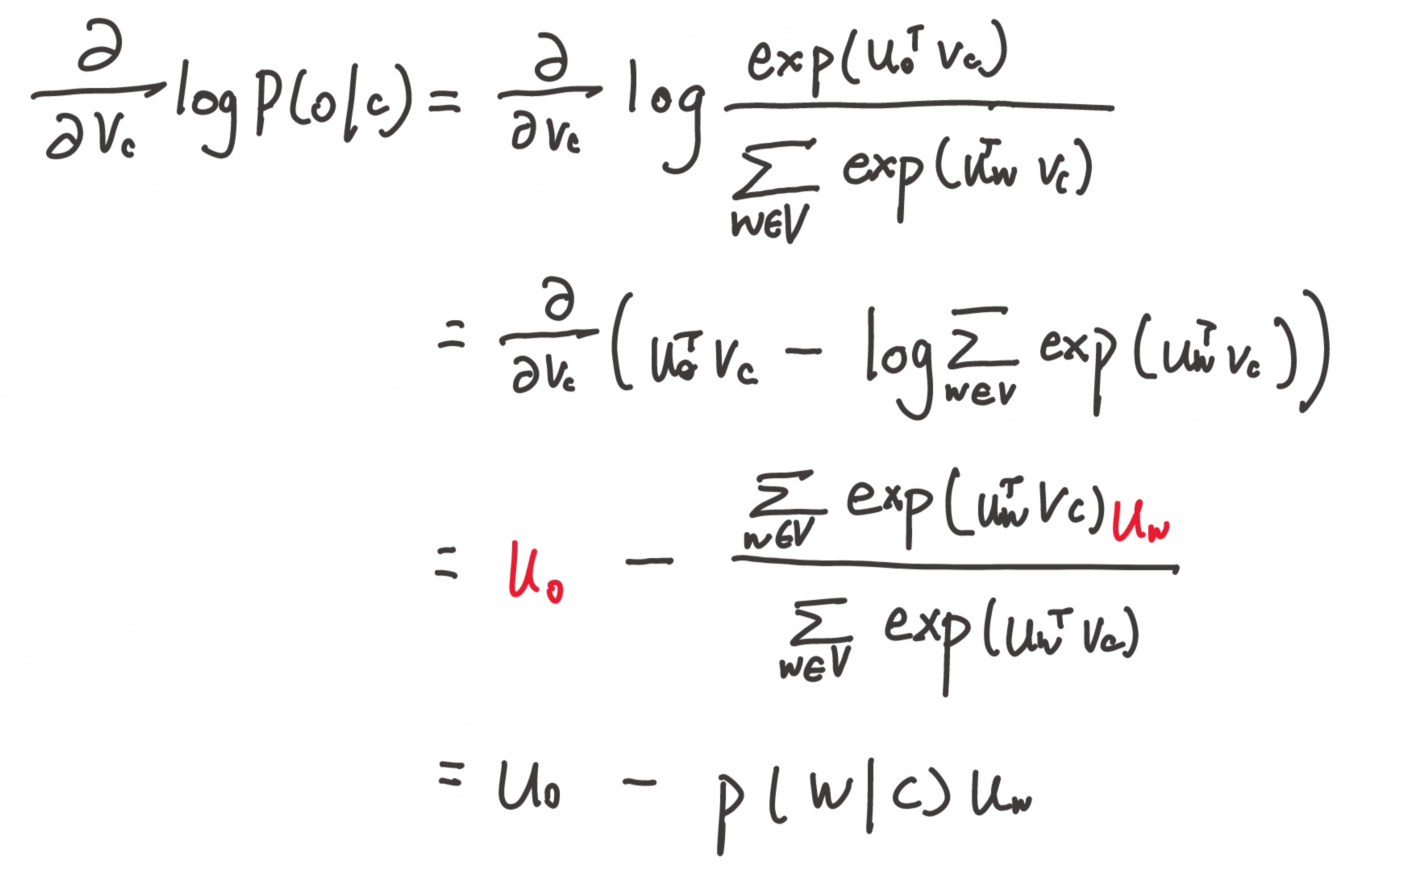 ∂/∂v_c log P(o|c) = ∂/∂v_c log exp(u_o^T v_c) / Σ_{w∈V} exp(u_w^T v_c)
= ∂/∂v_c (u_o^T v_c − log Σ_{w∈V} exp(u_w^T v_c))
= u_o − Σ_{w∈V} exp(u_w^T v_c) u_w / Σ_{w∈V} exp(u_w^T v_c)
= u_o − p(w|c) u_w